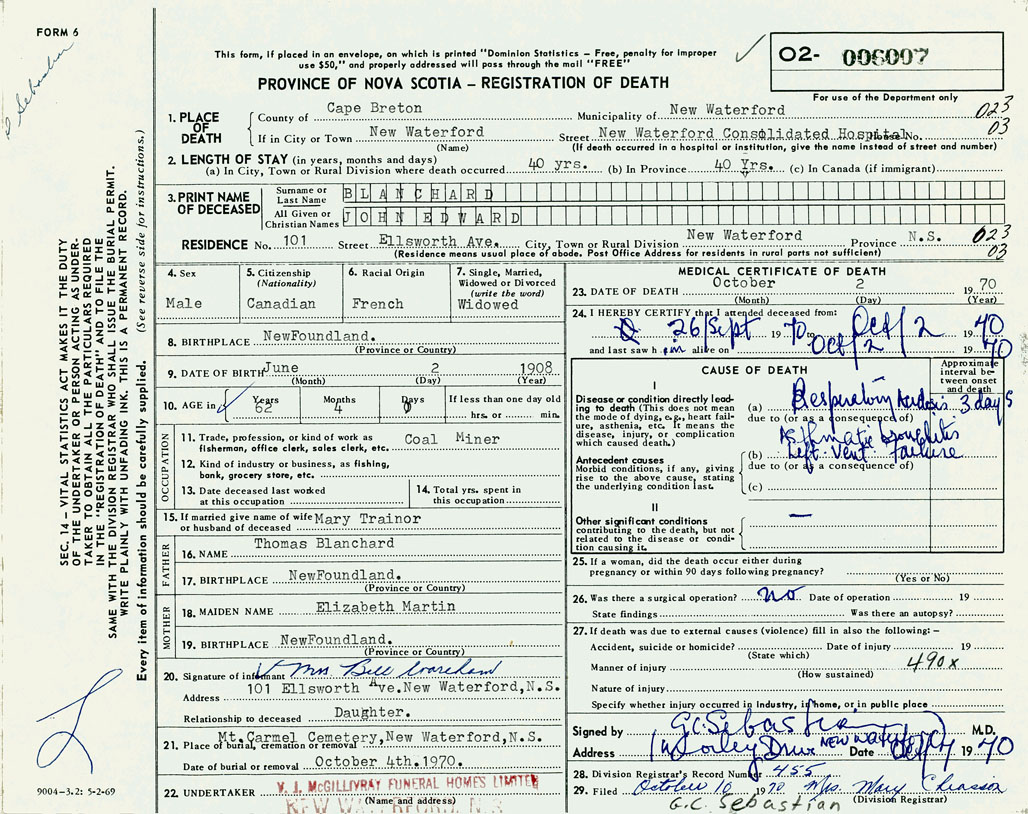 FORM 6
This form, if placed in an envelope, on which is printed "Dominion Statistics – Free, penalty for improper
use $50," and properly addressed will pass through the mail "FREE"
PROVINCE OF NOVA SCOTIA – REGISTRATION OF DEATH
O2- 006007
For use of the Department only
S Sebastian
SEC. 14 – VITAL STATISTICS ACT MAKES IT THE DUTY
OF THE UNDERTAKER OR PERSON ACTING AS UNDER-
TAKER TO OBTAIN ALL THE PARTICULARS REQUIRED
IN THE "REGISTRATION OF DEATH" AND TO FILE THE
SAME WITH THE DIVISION REGISTRAR WHO SHALL ISSUE THE BURIAL PERMIT.
WRITE PLAINLY WITH UNFADING INK. THIS IS A PERMANENT RECORD.
Every item of information should be carefully supplied. (See reverse side for instructions.)
1. PLACE OF DEATH
County of Cape Breton Municipality of New Waterford 023
If in City or Town New Waterford Street New Waterford Consolidated Hospital House No. 03
(Name) (If death occurred in a hospital or institution, give the name instead of street and number)
2. LENGTH OF STAY (in years, months and days)
(a) In City, Town or Rural Division where death occurred 40 yrs. (b) In Province 40 Yrs. (c) In Canada (if immigrant)
3. PRINT NAME OF DECEASED
Surname or Last Name BLANCHARD
All Given or Christian Names JOHN EDWARD
RESIDENCE No. 101 Street Ellsworth Ave. City, Town or Rural Division New Waterford Province N.S. 023
(Residence means usual place of abode. Post Office Address for residents in rural parts not sufficient) 03
4. Sex Male
5. Citizenship (Nationality) Canadian
6. Racial Origin French
7. Single, Married, Widowed or Divorced (write the word) Widowed
8. BIRTHPLACE NewFoundland.
(Province or Country)
9. DATE OF BIRTH June 2 1908
(Month) (Day) (Year)
10. AGE in Years 62 Months 4 Days 0 If less than one day old hrs. or min.
OCCUPATION
11. Trade, profession, or kind of work as fisherman, office clerk, sales clerk, etc. Coal Miner
12. Kind of industry or business, as fishing, bank, grocery store, etc.
13. Date deceased last worked at this occupation
14. Total yrs. spent in this occupation
15. If married give name of wife or husband of deceased Mary Trainor
FATHER
16. NAME Thomas Blanchard
17. BIRTHPLACE NewFoundland.
(Province or Country)
MOTHER
18. MAIDEN NAME Elizabeth Martin
19. BIRTHPLACE NewFoundland.
(Province or Country)
20. Signature of informant Mrs. Bill Wareham
Address 101 Ellsworth Ave. New Waterford, N.S.
Relationship to deceased Daughter.
21. Place of burial, cremation or removal Mt. Carmel Cemetery, New Waterford, N.S.
Date of burial or removal October 4th. 1970.
22. UNDERTAKER V. J. McGILLIVRAY FUNERAL HOMES LIMITED
(Name and address) NEW WATERFORD, N.S.
9004-3.2: 5-2-69
MEDICAL CERTIFICATE OF DEATH
23. DATE OF DEATH October 2 1970
(Month) (Day) (Year)
24. I HEREBY CERTIFY that I attended deceased from:
26/Sept 1970 to Oct/2 1970
and last saw h im alive on Oct/2 1970
CAUSE OF DEATH
Approximate interval between onset and death
I
Disease or condition directly leading to death (This does not mean the mode of dying, e.g., heart failure, asthenia, etc. It means the disease, injury, or complication which caused death.)
(a) Respiratory Acidosis 3 days
due to (or as a consequence of)
Asthmatic bronchitis
Antecedent causes
Morbid conditions, if any, giving rise to the above cause, stating the underlying condition last.
(b) Left. Vent. Failure
due to (or as a consequence of)
(c)
II
Other significant conditions
contributing to the death, but not related to the disease or condition causing it.
—
25. If a woman, did the death occur either during
pregnancy or within 90 days following pregnancy?
(Yes or No)
26. Was there a surgical operation? No Date of operation 19
State findings Was there an autopsy?
27. If death was due to external causes (violence) fill in also the following: –
Accident, suicide or homicide? Date of injury 19
(State which)
Manner of injury 490x
(How sustained)
Nature of injury
Specify whether injury occurred in Industry, in home, or in public place
Signed by G.C. Sebastian M.D.
Address Drive NEW WATERFORD Date Oct/4 1970
28. Division Registrar's Record Number 455
29. Filed October 10 1970 Mrs. Mary Chiasson
(Division Registrar)
G.C. Sebastian